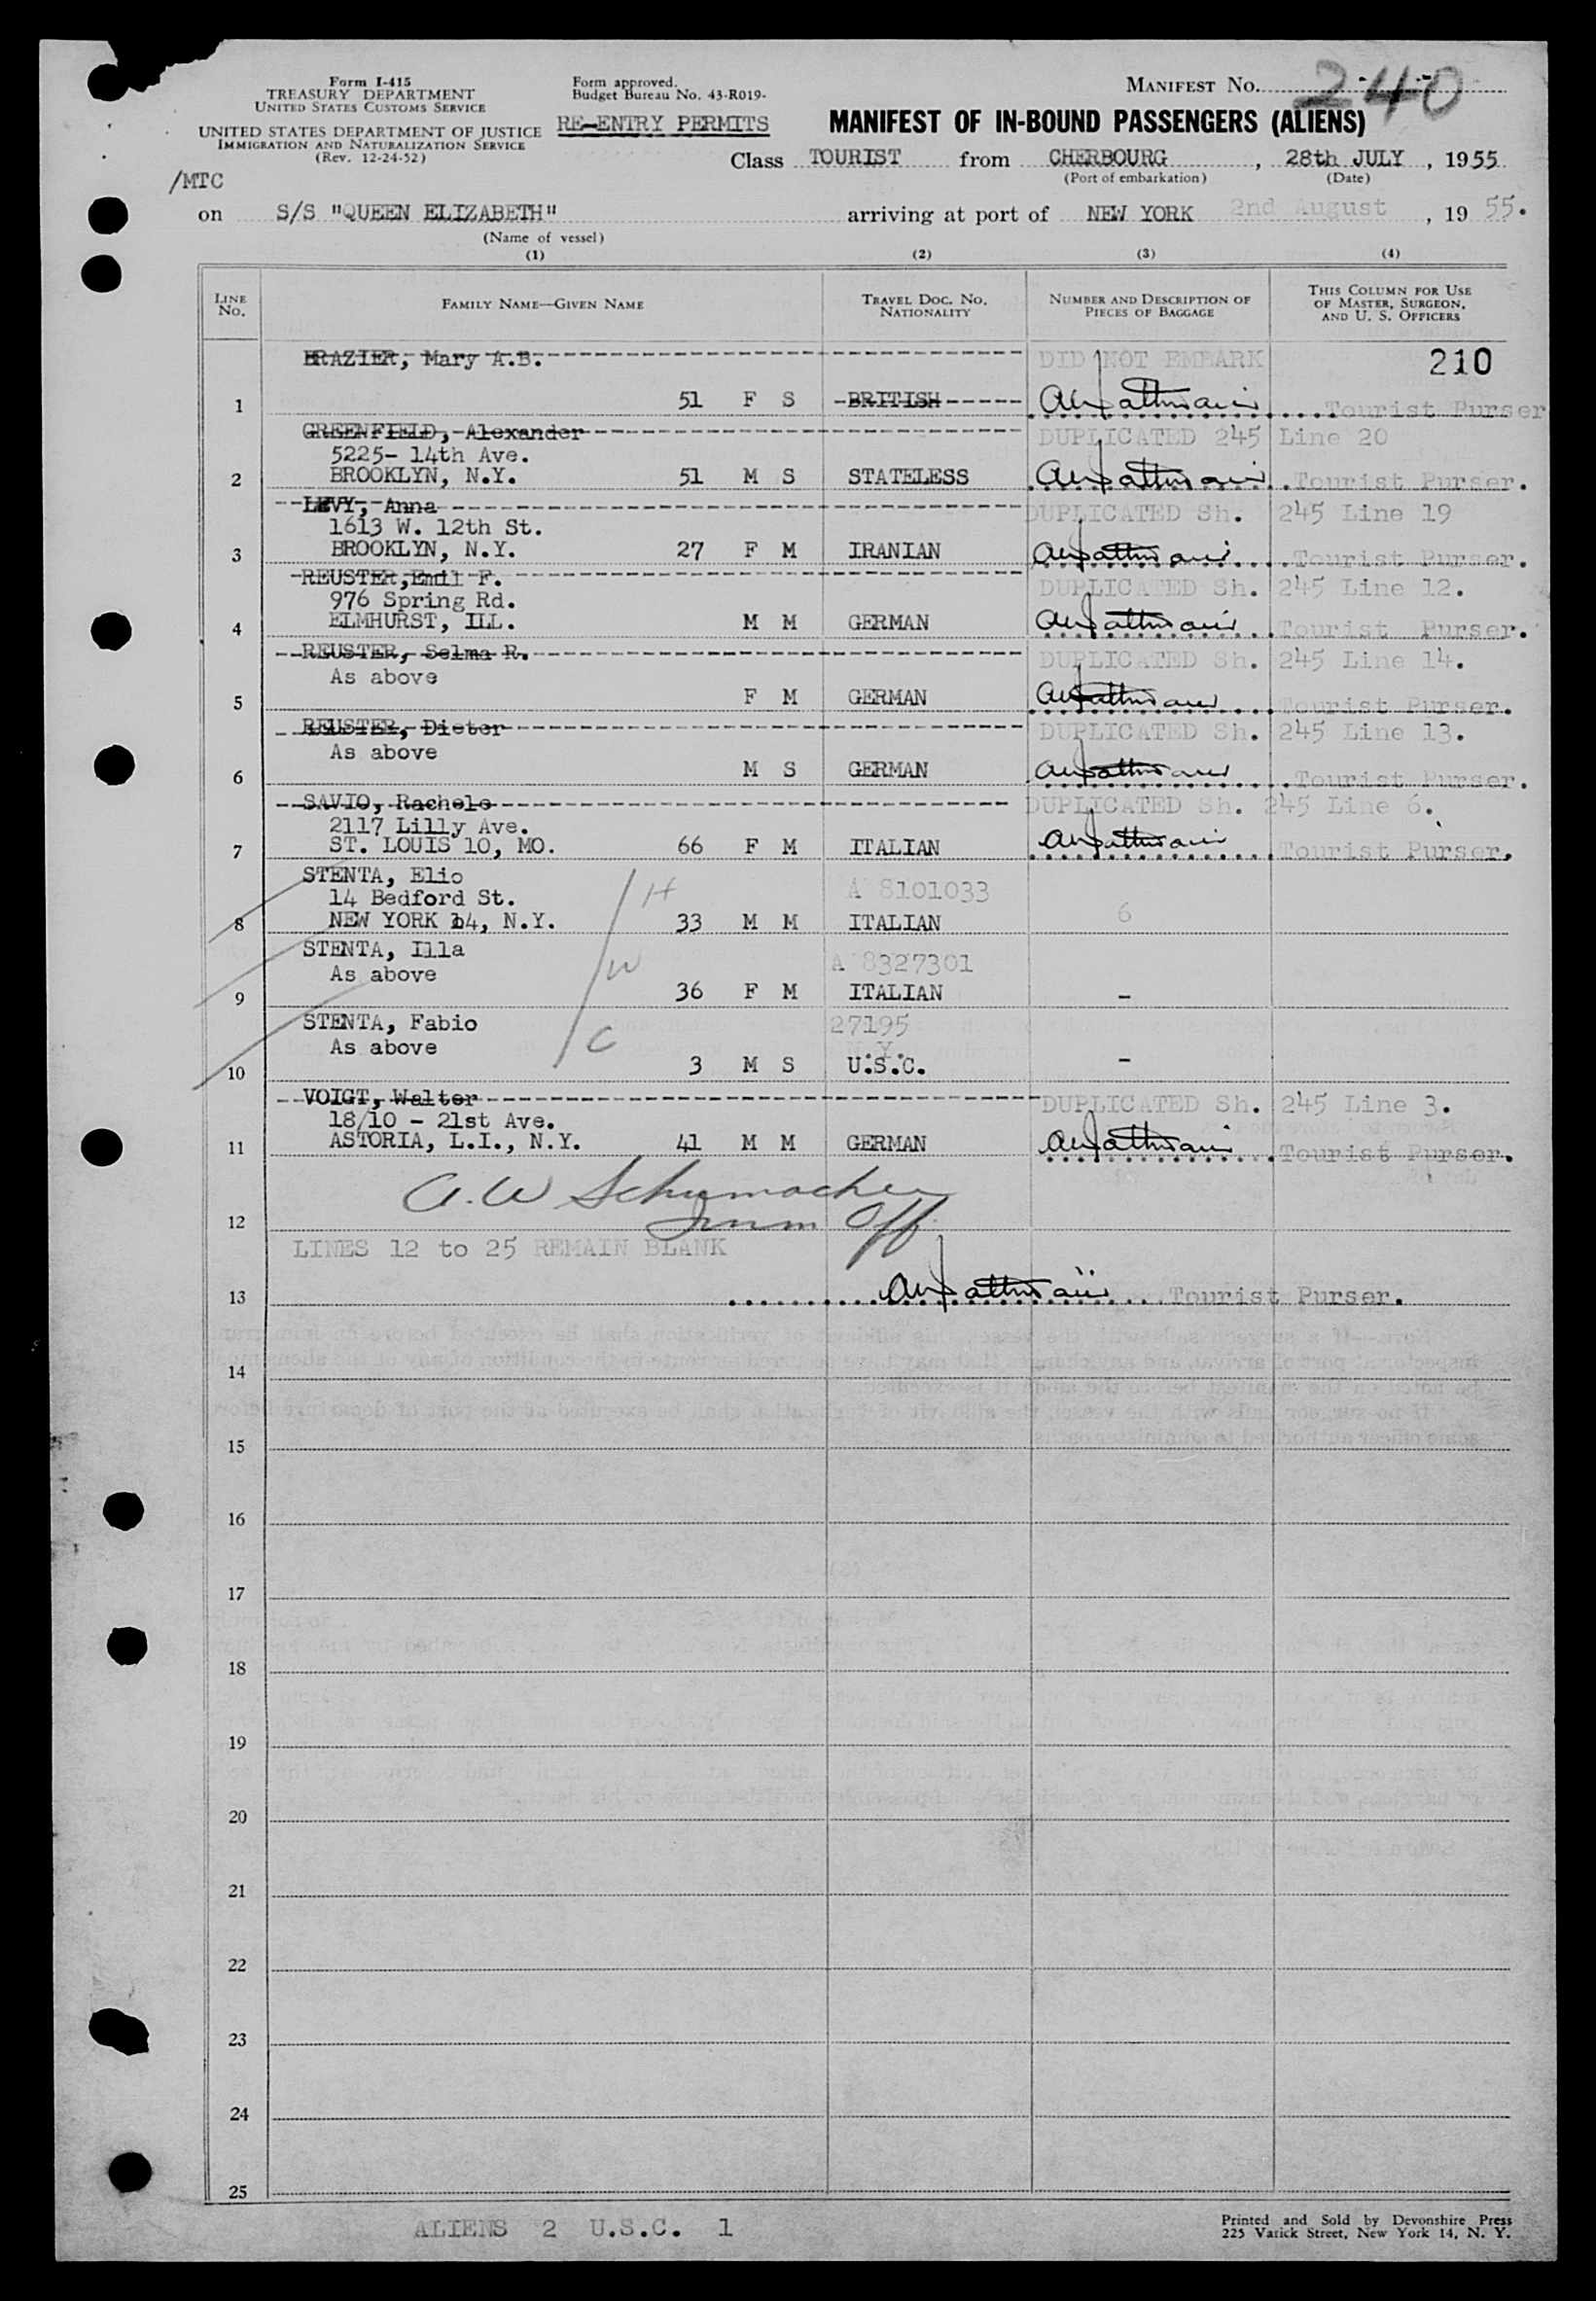 Form I-415
TREASURY DEPARTMENT
UNITED STATES CUSTOMS SERVICE
UNITED STATES DEPARTMENT OF JUSTICE
IMMIGRATION AND NATURALIZATION SERVICE
(Rev. 12-24-52)
Form approved.
Budget Bureau No. 43-R019-
RE-ENTRY PERMITS
MANIFEST NO. 240
MANIFEST OF IN-BOUND PASSENGERS (ALIENS)
Class TOURIST from CHERBOURG, 28th JULY, 1955
(Port of embarkation) (Date)
/MTC
on S/S "QUEEN ELIZABETH" arriving at port of NEW YORK 2nd August, 19 55.
(Name of vessel)
(1) (2) (3) (4)
LINE No. FAMILY NAME—GIVEN NAME TRAVEL DOC. NO. NATIONALITY NUMBER AND DESCRIPTION OF PIECES OF BAGGAGE THIS COLUMN FOR USE OF MASTER, SURGEON, AND U. S. OFFICERS
BRAZIER, Mary A.B. DID NOT EMBARK 210
1 51 F S BRITISH Tourist Purser
GREENFIELD, Alexander DUPLICATED 245 Line 20
5225- 14th Ave.
2 BROOKLYN, N.Y. 51 M S STATELESS Tourist Purser.
LEVY, Anna DUPLICATED Sh. 245 Line 19
1613 W. 12th St.
3 BROOKLYN, N.Y. 27 F M IRANIAN Tourist Purser.
REUSTER, Emil F. DUPLICATED Sh. 245 Line 12.
976 Spring Rd.
4 ELMHURST, ILL. M M GERMAN Tourist Purser.
REUSTER, Selma R. DUPLICATED Sh. 245 Line 14.
As above
5 F M GERMAN Tourist Purser.
REUSTER, Dieter DUPLICATED Sh. 245 Line 13.
As above
6 M S GERMAN Tourist Purser.
SAVIO, Rachele DUPLICATED Sh. 245 Line 6.
2117 Lilly Ave.
7 ST. LOUIS 10, MO. 66 F M ITALIAN Tourist Purser.
STENTA, Elio H A 8101033
14 Bedford St.
8 NEW YORK 14, N.Y. 33 M M ITALIAN 6
STENTA, Illa W A 8327301
As above
9 36 F M ITALIAN -
STENTA, Fabio C 27195
As above N.Y.
10 3 M S U.S.C. -
VOIGT, Walter DUPLICATED Sh. 245 Line 3.
18/10 - 21st Ave.
11 ASTORIA, L.I., N.Y. 41 M M GERMAN Tourist Purser.
A.W Schumacher
12 Imm Off
LINES 12 to 25 REMAIN BLANK
13 Tourist Purser.
14
15
16
17
18
19
20
21
22
23
24
25
ALIENS 2 U.S.C. 1
Printed and Sold by Devonshire Press
225 Varick Street, New York 14, N. Y.